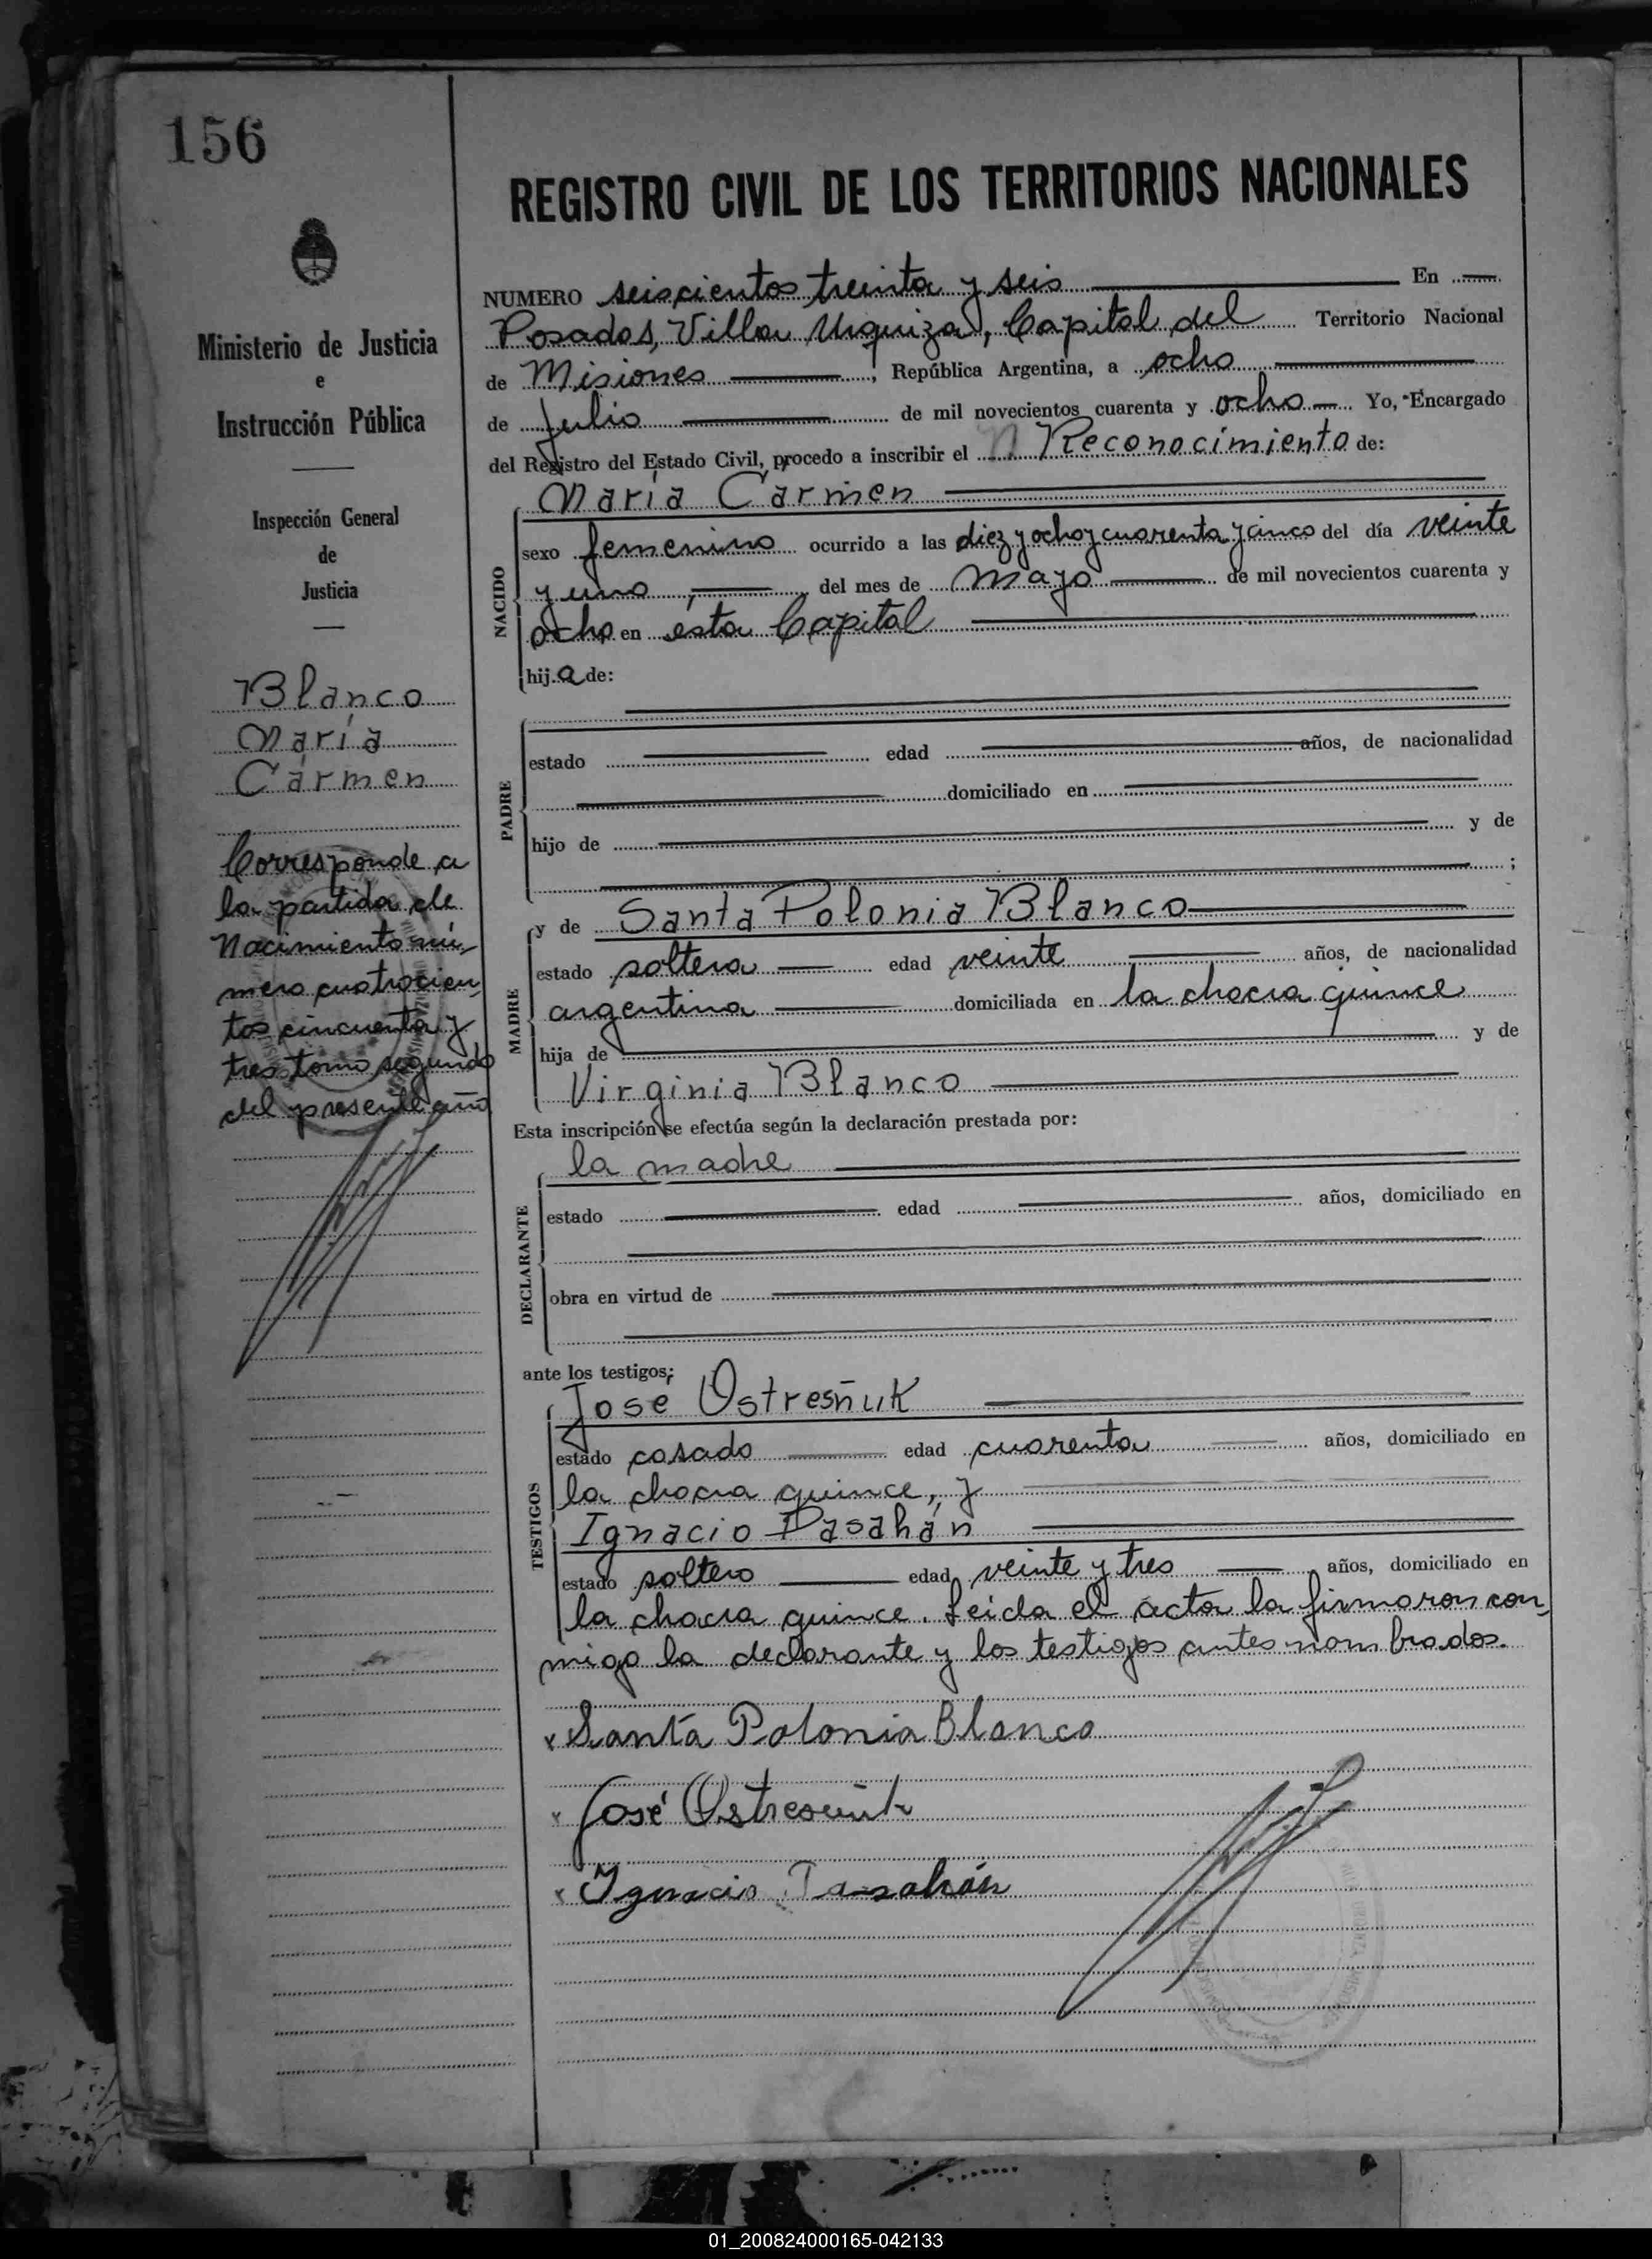 156
REGISTRO CIVIL DE LOS TERRITORIOS NACIONALES
Ministerio de Justicia
e
Instrucción Pública
Inspección General
de
Justicia
Blanco
María
Cármen
Corresponde a
la partida de
Nacimiento nú-
mero cuatrocien-
tos cincuenta y
tres tomo segundo
del presente año
NUMERO seiscientos treinta y seis En
Posadas, Villa Urquiza, Capital del Territorio Nacional
de Misiones, República Argentina, a ocho
de Julio de mil novecientos cuarenta y ocho Yo, Encargado
del Registro del Estado Civil, procedo a inscribir el Reconocimiento de:
NACIDO
María Carmen
sexo femenino ocurrido a las diez y ocho y cuarenta y cinco del día veinte
y uno, del mes de Mayo de mil novecientos cuarenta y
ocho en ésta Capital
hija de:
PADRE
estado edad años, de nacionalidad
domiciliado en
hijo de y de
;
MADRE
y de Santa Polonia Blanco
estado soltera edad veinte años, de nacionalidad
argentina domiciliada en la chacra quince
hija de y de
Virginia Blanco
Esta inscripción se efectúa según la declaración prestada por:
DECLARANTE
la madre
estado edad años, domiciliado en
obra en virtud de
ante los testigos:
TESTIGOS
José Ostresñuk
estado casado edad cuarenta años, domiciliado en
la chacra quince, y
Ignacio Pasahán
estado soltero edad veinte y tres años, domiciliado en
la chacra quince. Leída el acta la firmaron con-
migo la declarante y los testigos antes nombrados.
x Santa Polonia Blanco
x José
x Ignacio
01_200824000165-042133